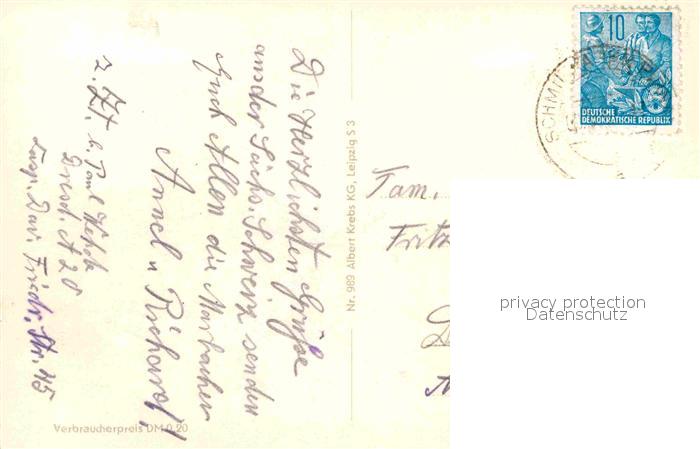 Die Herzlichsten Grüße
aus der Sächs. Schweiz senden
Euch Allen die Marbacher
Annel u Richard!
z. Zt. b. Paul
Dresd. A 20
Casp. Dav. Friedr. Str. 45
Verbraucherpreis DM 0,20
Nr. 989 Albert Krebs KG, Leipzig S 3
10
DEUTSCHE
DEMOKRATISCHE REPUBLIK
Fam.
Fritz
privacy protection
Datenschutz